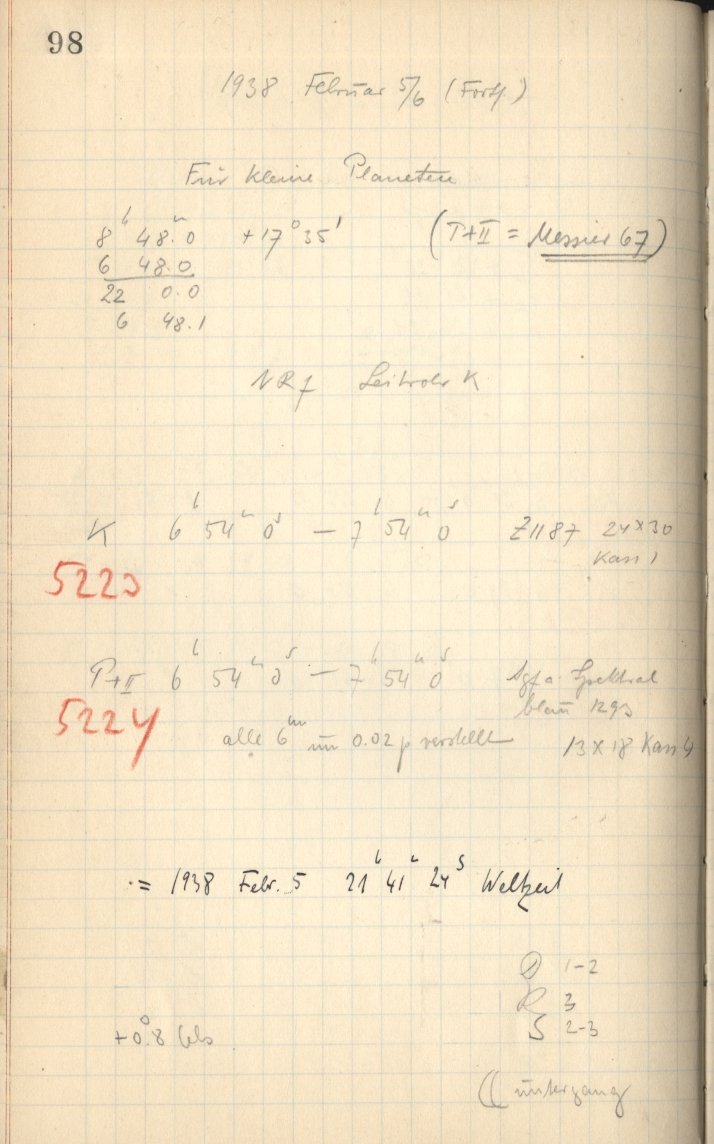 98
1938 Februar 5/6 (Forts.)
Für kleine Planeten
8ʰ 48ᵐ.0 +17°35' (T+II = Messier 67)
6 48.0
22 0.0
6 48.1
Leitrohr K
K 6ʰ 54ᵐ 0ˢ — 7ʰ 54ᵐ 0ˢ Z1187 24×30
Kass 1
5223
T+II 6ʰ 54ᵐ 0ˢ — 7ʰ 54ᵐ 0ˢ Agfa Spektral
blau 1293
5224
alle 6ᵐ um 0.02 p verstellt 13×18 Kass 4
= 1938 Febr. 5 21ʰ 41ᵐ 24ˢ Weltzeit
1-2
R 3
S 2-3
+0°.8 Cels
untergang